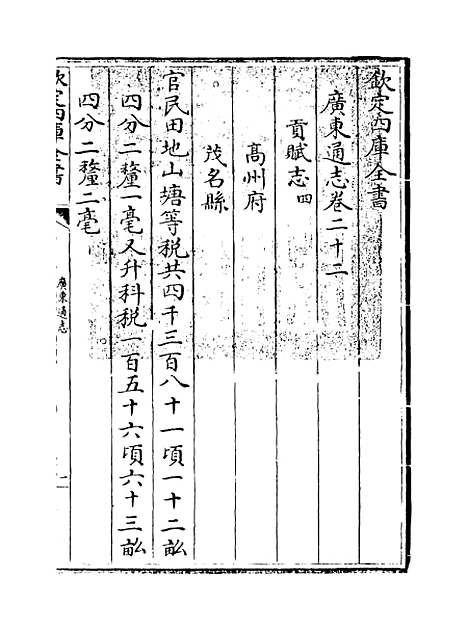 欽定四庫全書
廣東通志卷二十二
貢賦志四
高州府
茂名縣
官民田地山塘等税共四千三百八十一頃一十二畝
四分二釐一毫又升科税一百五十六頃六十三畝
四分二釐二毫
欽定四庫全書
廣東通志
一